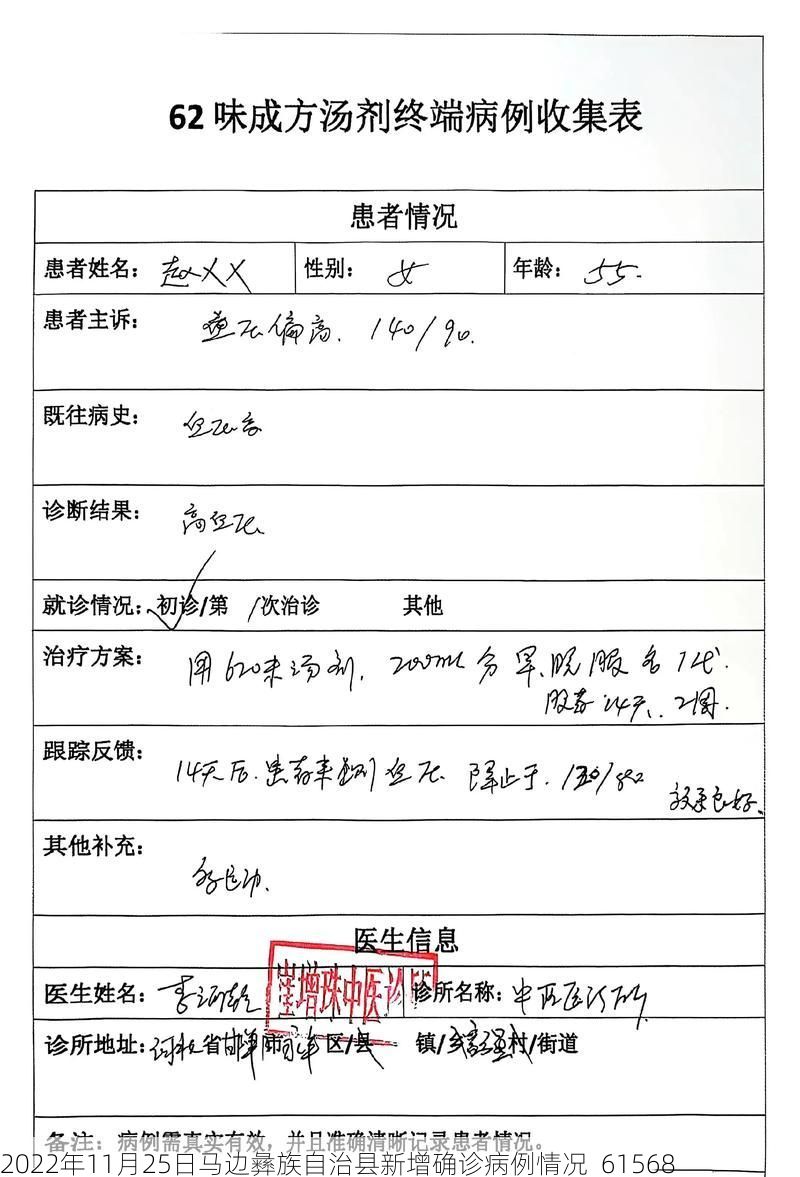 62 味成方汤剂终端病例收集表
患者情况
患者姓名： 赵XX 性别： 女 年龄： 55.
患者主诉： 血压偏高. 140/90.
既往病史： 血压高
诊断结果： 高血压
就诊情况： 初诊/第 /次治诊 其他
治疗方案： 用 汤剂, 200ml 分早.晚服各1代.
服药14天、2周.
跟踪反馈： 14天后.患者来 血压. 于.
效果良好.
其他补充：
医生信息
医生姓名： 李 崔增珠中医诊所 诊所名称： 中医医诊所
诊所地址： 河北省邯郸市 区/县 镇/乡 村/街道
备注：病例需真实有效，并且准确清晰记录患者情况。
2022年11月25日马边彝族自治县新增确诊病例情况 61568